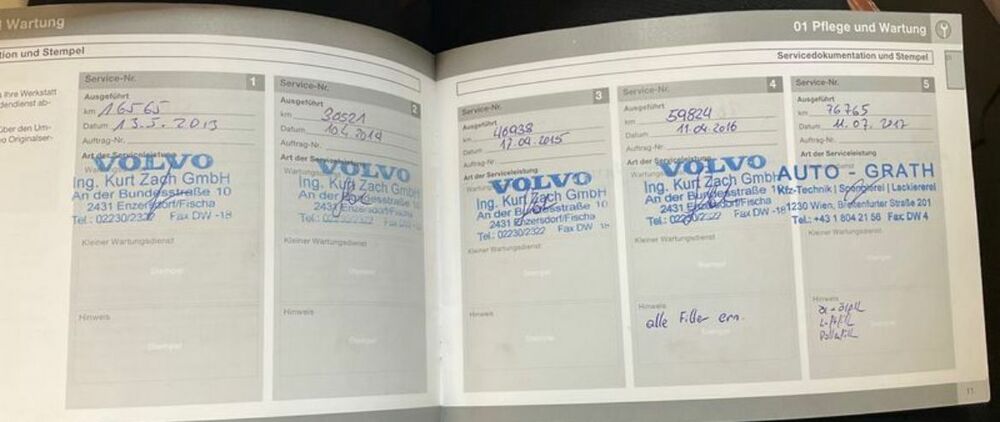 Wartung
tion und Stempel
s Ihre Werkstatt
dendienst ab-
über den Um-
o Originalser-
Service-Nr. 1
Ausgeführt
km 16565
Datum 13.5.2013
Auftrag-Nr.
Art der Serviceleistung
VOLVO
Ing. Kurt Zach GmbH
An der Bundesstraße 10
2431 Enzersdorf/Fischa
Tel.: 02230/2322 Fax DW -18
Kleiner Wartungsdienst
Stempel
Hinweis
Stempel
Service-Nr. 2
Ausgeführt
km 30521
Datum 10.4.2014
Auftrag-Nr.
Art der Serviceleistung
VOLVO
Ing. Kurt Zach GmbH
An der Bundesstraße 10
2431 Enzersdorf/Fischa
Tel.: 02230/2322 Fax DW -18
Kleiner Wartungsdienst
Stempel
Hinweis
Stempel
01 Pflege und Wartung
Servicedokumentation und Stempel
Service-Nr. 3
Ausgeführt
km 46938
Datum 17.04.2015
Auftrag-Nr.
Art der Serviceleistung
VOLVO
Ing. Kurt Zach GmbH
An der Bundesstraße 10
2431 Enzersdorf/Fischa
Tel.: 02230/2322 Fax DW -18
Kleiner Wartungsdienst
Stempel
Hinweis
Stempel
Service-Nr. 4
Ausgeführt
km 59824
Datum 11.04.2016
Auftrag-Nr.
Art der Serviceleistung
VOLVO
Ing. Kurt Zach GmbH
An der Bundesstraße 10
2431 Enzersdorf/Fischa
Tel.: 02230/2322 Fax DW -18
Kleiner Wartungsdienst
Stempel
Hinweis
alle Filter ern.
Stempel
Service-Nr. 5
Ausgeführt
km 76765
Datum 11.07.2017
Auftrag-Nr.
Art der Serviceleistung
AUTO - GRATH
Kfz-Technik | Spenglerei | Lackiererei
1230 Wien, Breitenfurter Straße 201
Tel.: +43 1 804 21 56 Fax DW 4
Kleiner Wartungsdienst
Stempel
Hinweis
Stempel
11